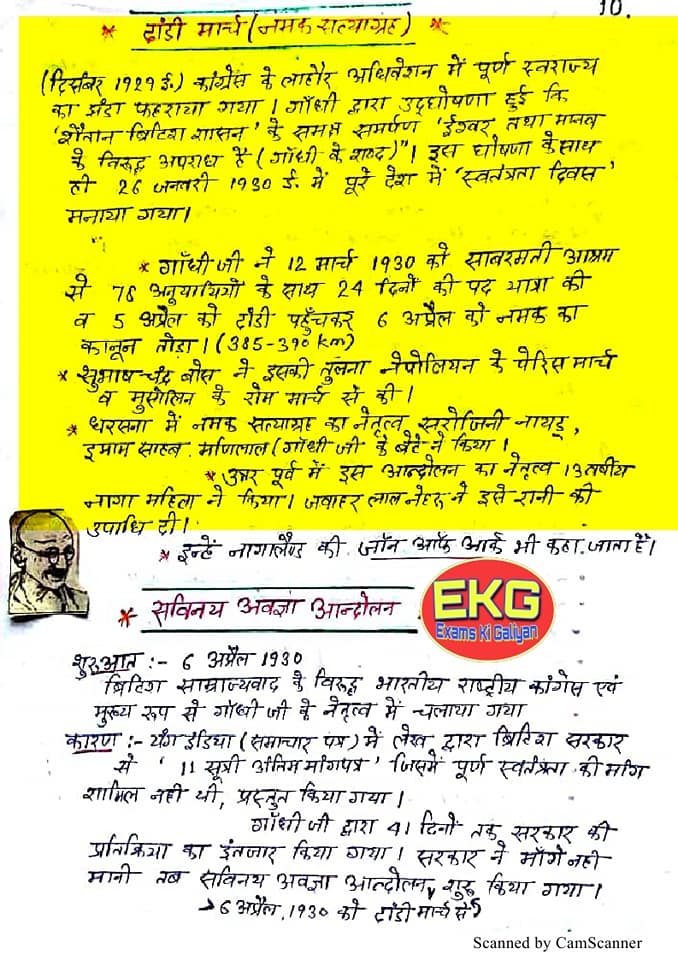 10.
* दांडी मार्च (नमक सत्याग्रह) *
(दिसंबर 1929 ई.) कांग्रेस के लाहौर अधिवेशन में पूर्ण स्वराज्य
का झंडा फहराया गया। गाँधी द्वारा उद्घोषणा हुई कि
'शैतान ब्रिटिश शासन' के समक्ष समर्पण 'ईश्वर तथा मानव
के विरुद्ध अपराध है (गाँधी के शब्द)"। इस घोषणा के साथ
ही 26 जनवरी 1930 ई. में पूरे देश में 'स्वतंत्रता दिवस'
मनाया गया।
* गाँधी जी ने 12 मार्च 1930 को साबरमती आश्रम
से 78 अनुयायियों के साथ 24 दिनों की पद यात्रा की
व 5 अप्रैल को दांडी पहुँचकर 6 अप्रैल को नमक का
कानून तोड़ा। (385-390 km)
* सुभाष चन्द्र बोस ने इसकी तुलना नेपोलियन के पेरिस मार्च
व मुसोलिन के रोम मार्च से की।
* धरसना में नमक सत्याग्रह का नेतृत्व सरोजिनी नायडू,
इमाम साहब, मणिलाल (गाँधी जी के बेटे ने किया।
* उत्तर पूर्व में इस आन्दोलन का नेतृत्व 13 वर्षीय
नागा महिला ने किया। जवाहर लाल नेहरू ने इसे रानी की
उपाधि दी।
* इन्हें नागालैण्ड की जॉन ऑफ आर्क भी कहा जाता है।
* सविनय अवज्ञा आन्दोलन
EKG
Exams Ki Galiyan
शुरुआत :- 6 अप्रैल 1930
ब्रिटिश साम्राज्यवाद के विरुद्ध भारतीय राष्ट्रीय कांग्रेस एवं
मुख्य रूप से गाँधी जी के नेतृत्व में चलाया गया
कारण :- यंग इंडिया (समाचार पत्र) में लेख द्वारा ब्रिटिश सरकार
से '11 सूत्री अंतिम मांगपत्र' जिसमें पूर्ण स्वतंत्रता की मांग
शामिल नहीं थी, प्रस्तुत किया गया।
गाँधी जी द्वारा 41 दिनों तक सरकार की
प्रतिक्रिया का इंतजार किया गया। सरकार ने माँगे नही
मानी तब सविनय अवज्ञा आन्दोलन शुरू किया गया।
→ 6 अप्रैल, 1930 को दांडी मार्च से
Scanned by CamScanner